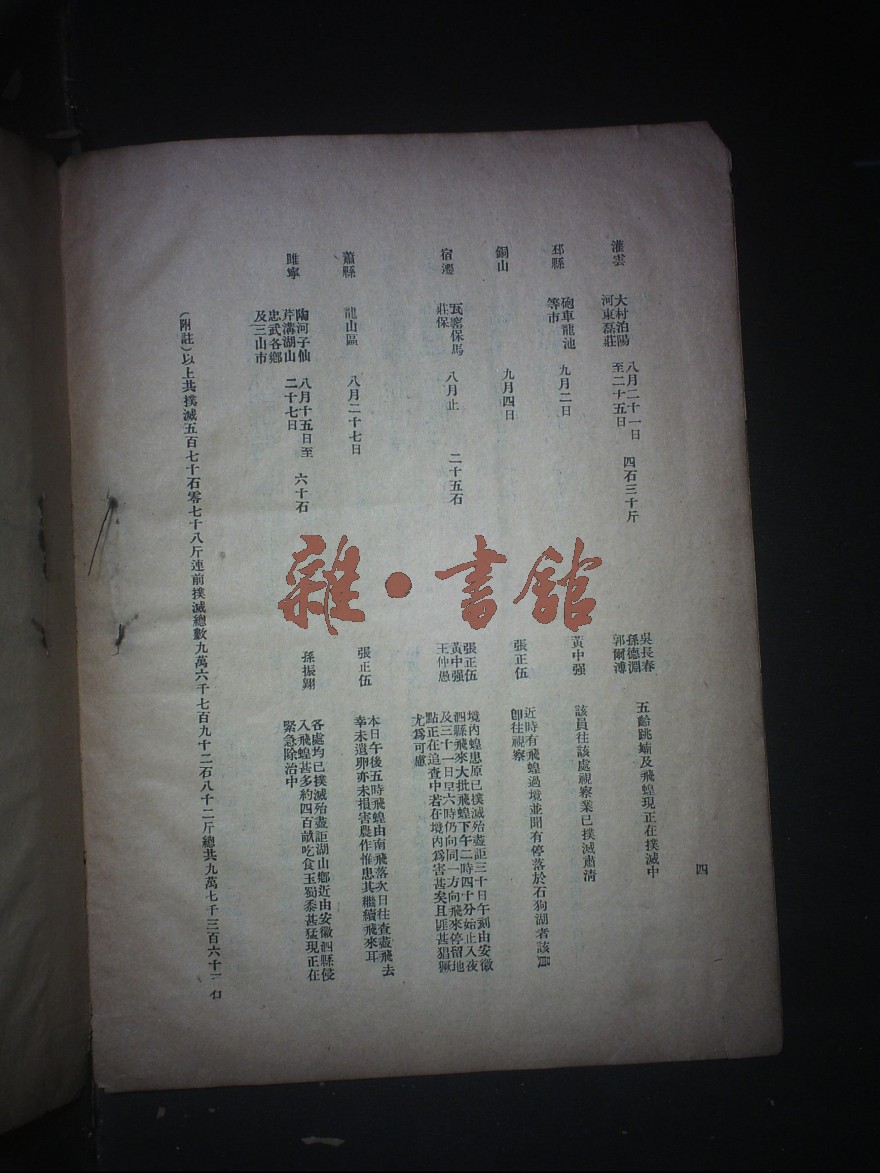 四
灌雲
大村泊陽
河東磊莊
八月二十一日
至二十五日
四石三十斤
吳長春
孫德淵
郭爾溥
五齡跳蝻及飛蝗現正在撲滅中
邳縣
砲車龍池
等市
九月二日
黃中强
該員往該處視察業已撲滅肅清
銅山
九月四日
張正伍
近時有飛蝗過境並聞有停落於石狗湖者該員
卽往視察
宿遷
瓦窰保馬
莊保
八月止
二十五石
張正伍
黃中强
王仲愚
境內蝗患原已撲滅殆盡詎三十日午刻由安徽
泗縣飛來大批飛蝗下午二時四十分始止入夜
及三十一日早六時仍向同一方向飛來停留地
點正在追查中若在境內爲害甚矣且匪甚猖獗
尤爲可慮
蕭縣
龍山區
八月二十七日
張正伍
本日午後五時飛蝗由南飛落次日往查盡飛去
幸未遺卵亦未損害農作惟患其繼續飛來耳
睢寧
陶河子仙
芹溝湖山
忠武各鄉
及三山市
八月十五日至
二十七日
六千石
孫振翱
各處均已撲滅殆盡詎湖山鄉近由安徽泗縣侵
入飛蝗甚多約四百畝吃食玉蜀黍甚猛現正在
緊急除治中
(附註)以上共撲滅五百七十石零七十八斤連前撲滅總數九萬六千七百九十二石八十二斤總共九萬七千三百六十 石
雜·書館